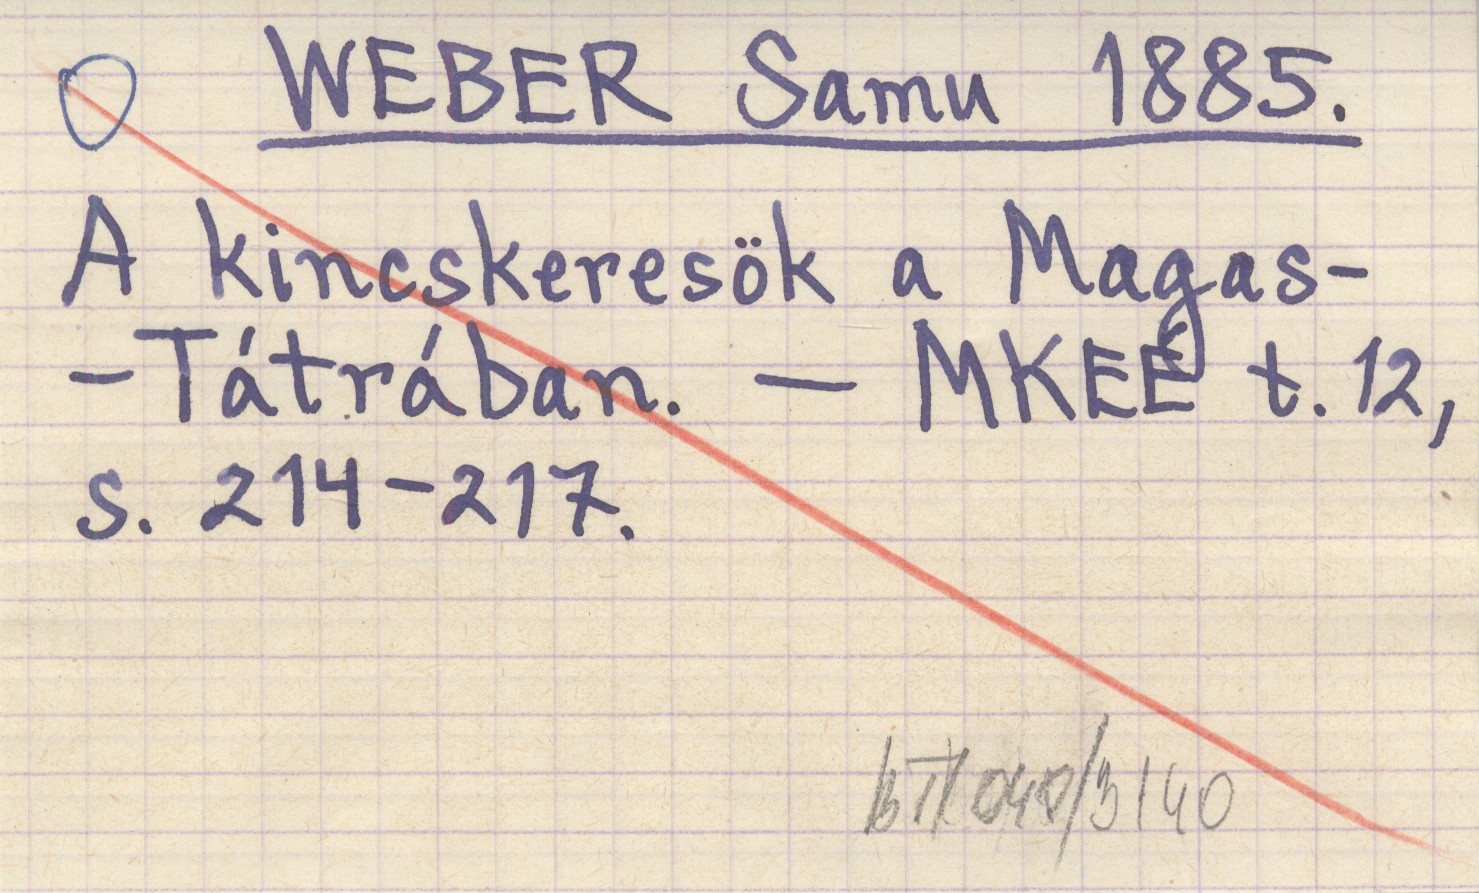 WEBER Samu 1885.
A kincskeresök a Magas-
-Tátrában. — MKEÉ t. 12,
s. 214-217.